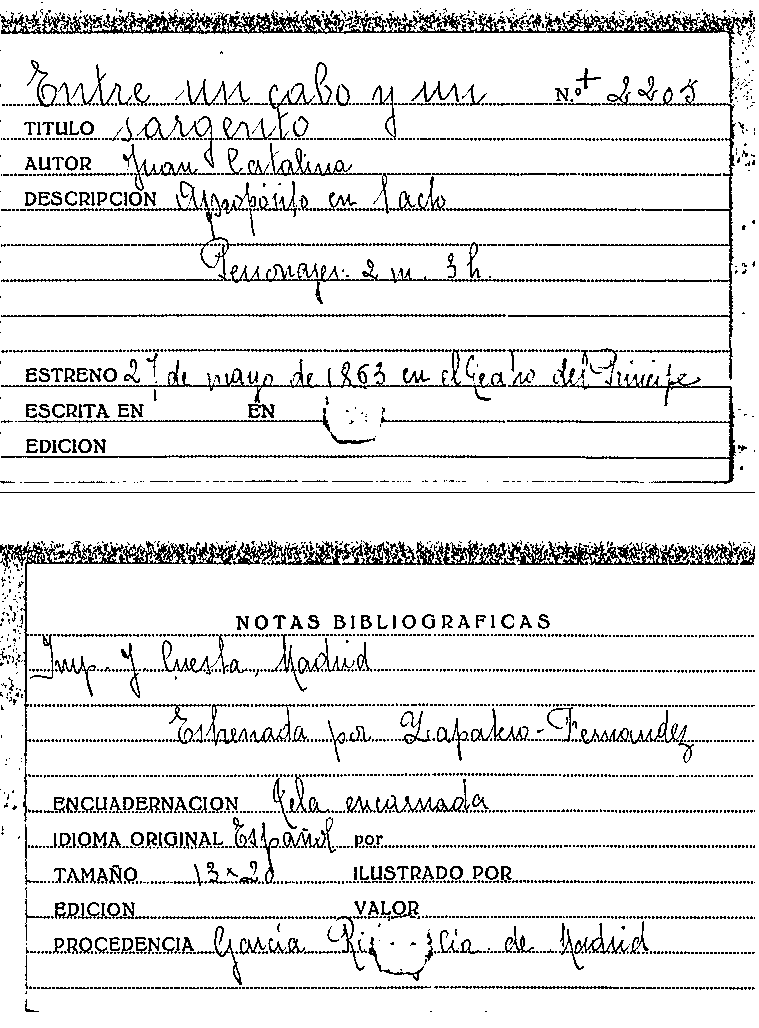 Entre un cabo y un N.º+ 2205
TITULO sargento
AUTOR Juan Catalina
DESCRIPCION Apropósito en 1 acto
Personajes: 2 m. 3 h.
ESTRENO 27 de mayo de 1863 en el Teatro del Principe
ESCRITA EN EN
EDICION
NOTAS BIBLIOGRAFICAS
Imp. J. Cuesta, Madrid
Estrenada por Zapatero-Fernandez
ENCUADERNACION Tela encarnada
IDIOMA ORIGINAL Español por
TAMAÑO 13x20 ILUSTRADO POR
EDICION VALOR
PROCEDENCIA García de Madrid